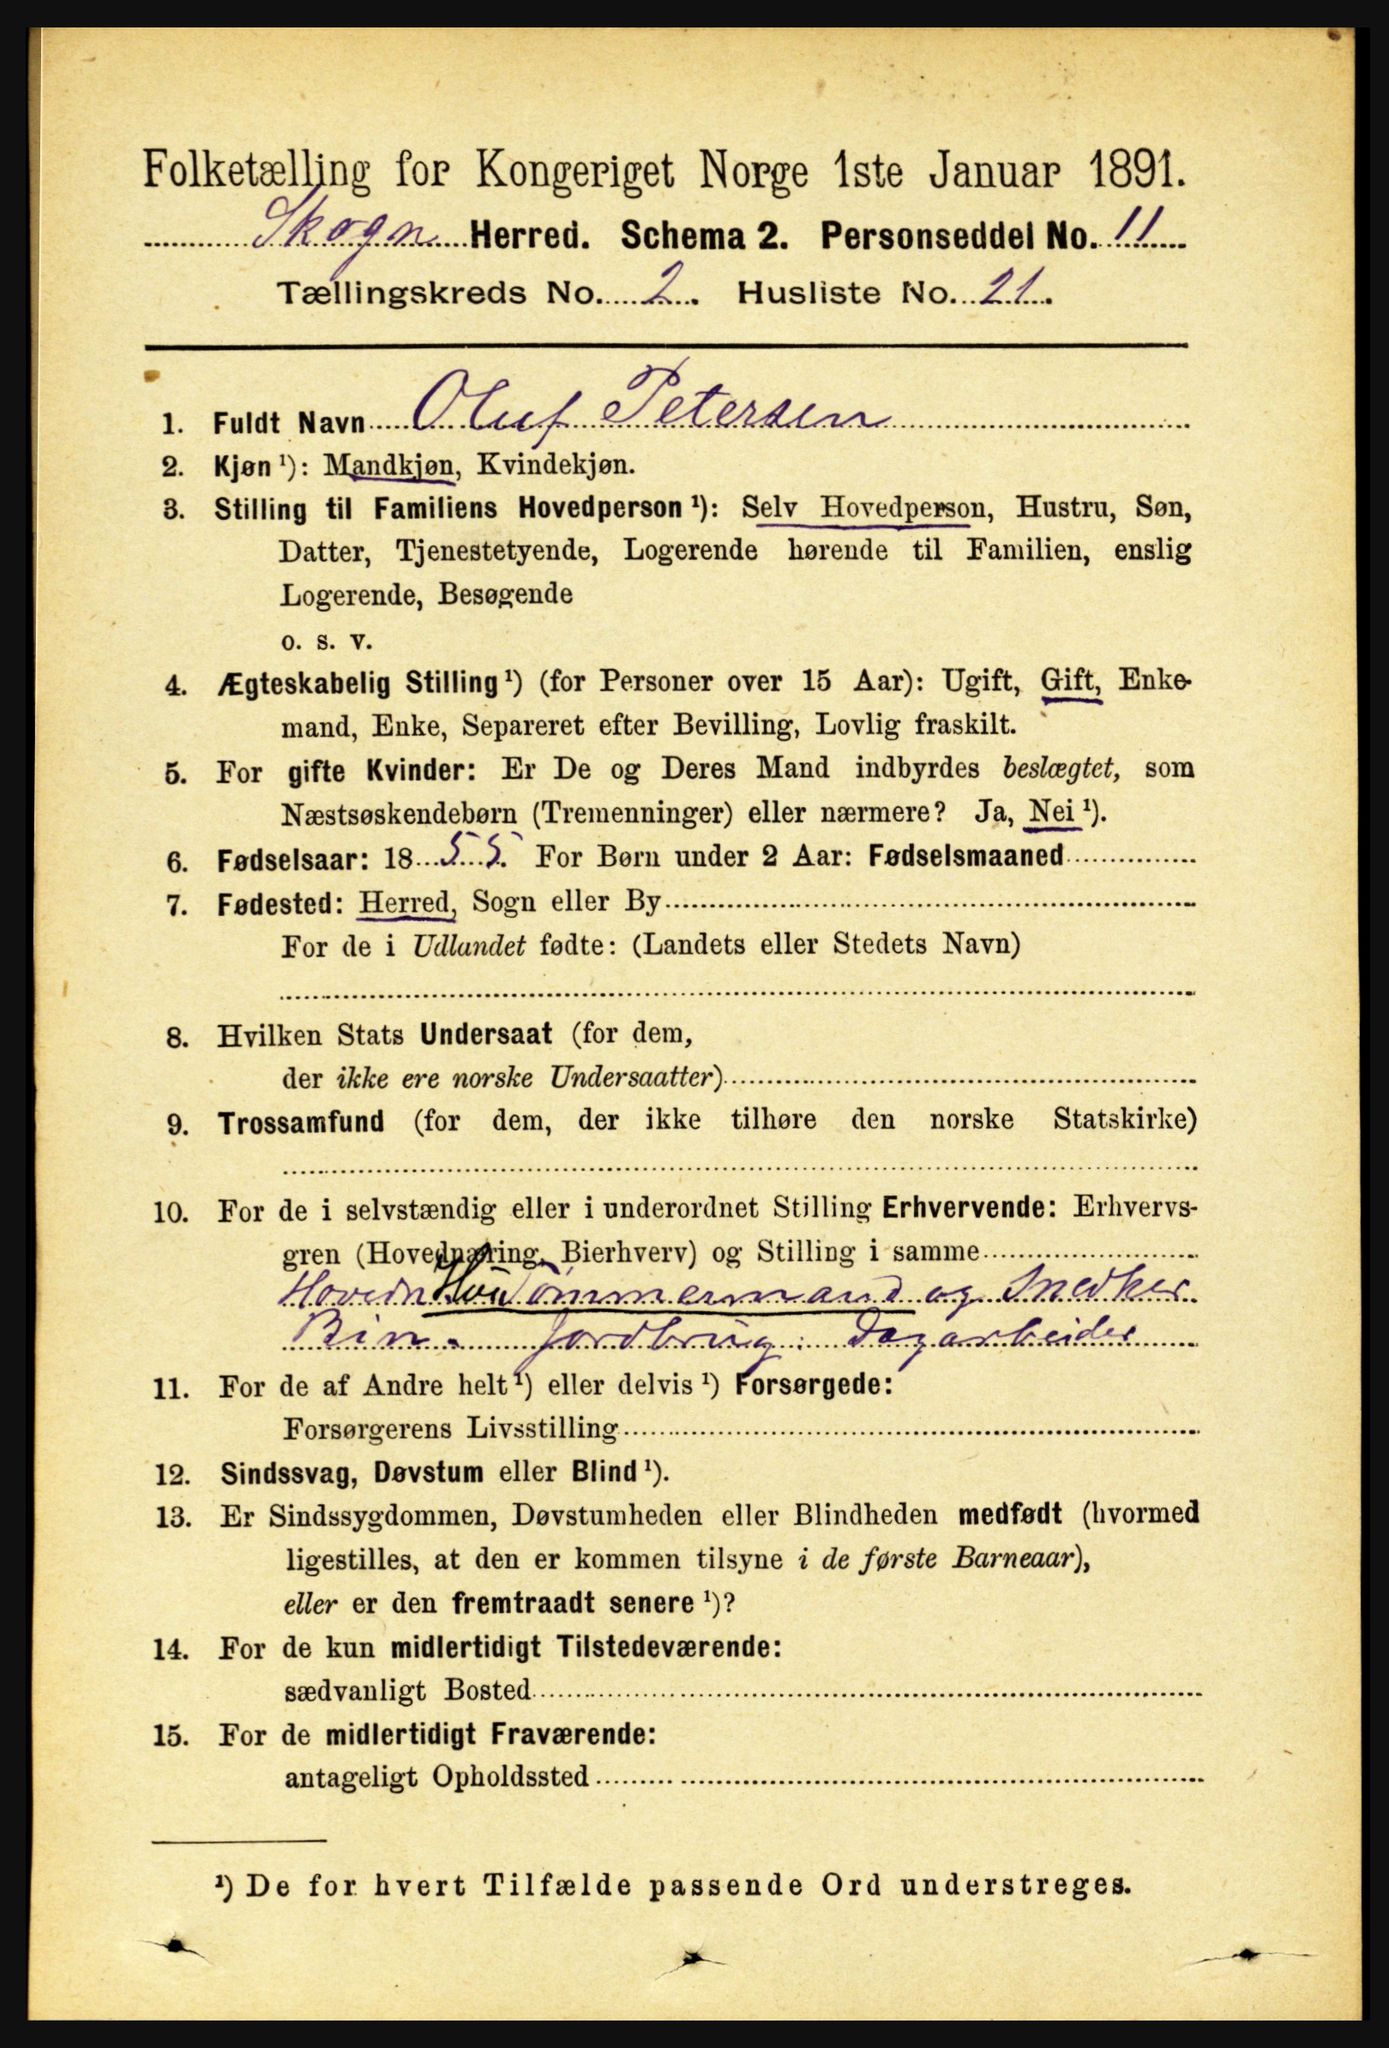 Folketælling for Kongeriget Norge 1ste Januar 1891.
Skogn Herred. Schema 2. Personseddel No. 11
Tællingskreds No. 2. Husliste No. 21.
1. Fuldt Navn Oluf Petersen
2. Kjøn ¹): Mandkjøn, Kvindekjøn.
3. Stilling til Familiens Hovedperson ¹): Selv Hovedperson, Hustru, Søn,
Datter, Tjenestetyende, Logerende hørende til Familien, enslig
Logerende, Besøgende
o. s. v.
4. Ægteskabelig Stilling ¹) (for Personer over 15 Aar): Ugift, Gift, Enke-
mand, Enke, Separeret efter Bevilling, Lovlig fraskilt.
5. For gifte Kvinder: Er De og Deres Mand indbyrdes beslægtet, som
Næstsøskendebørn (Tremenninger) eller nærmere? Ja, Nei ¹).
6. Fødselsaar: 1855. For Børn under 2 Aar: Fødselsmaaned
7. Fødested: Herred, Sogn eller By
For de i Udlandet fødte: (Landets eller Stedets Navn)
8. Hvilken Stats Undersaat (for dem,
der ikke ere norske Undersaatter)
9. Trossamfund (for dem, der ikke tilhøre den norske Statskirke)
10. For de i selvstændig eller i underordnet Stilling Erhvervende: Erhvervs-
gren (Hovednæring, Bierhverv) og Stilling i samme
Hovedn Tømmermand og Snedker
Bin. Jordbrug: Dagarbeider
11. For de af Andre helt ¹) eller delvis ¹) Forsørgede:
Forsørgerens Livsstilling
12. Sindssvag, Døvstum eller Blind ¹).
13. Er Sindssygdommen, Døvstumheden eller Blindheden medfødt (hvormed
ligestilles, at den er kommen tilsyne i de første Barneaar),
eller er den fremtraadt senere ¹)?
14. For de kun midlertidigt Tilstedeværende:
sædvanligt Bosted
15. For de midlertidigt Fraværende:
antageligt Opholdssted
¹) De for hvert Tilfælde passende Ord understreges.